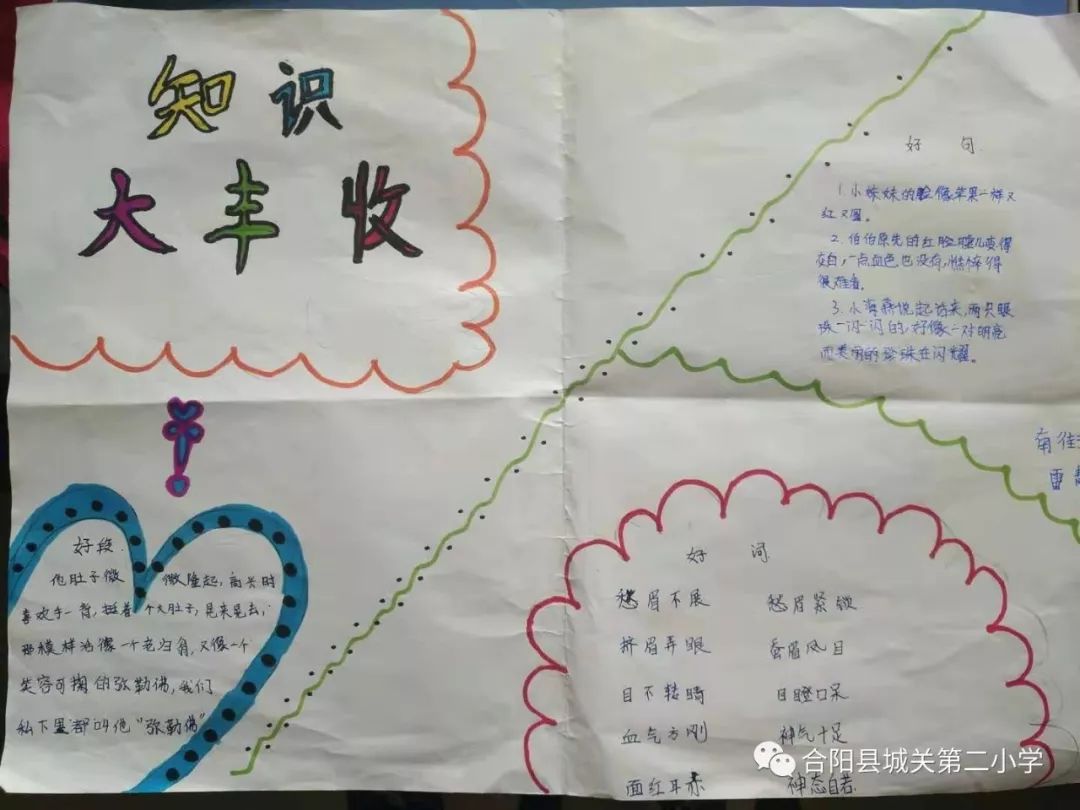 知识
大丰收
好句
1.小妹妹的脸像苹果一样又
红又圆。
2.伯伯原先的红脸膛儿变得
灰白,一点血色也没有,憔悴得
很难看。
3.小海燕说起话来,两只眼
珠一闪一闪的,好像一对明亮
而美丽的珍珠在闪耀。
南佳
雷
好段
他肚子微微隆起,高兴时
喜欢手一背,挺着个大肚子,晃来晃去,
那模样活像一个老，又像一个
笑容可掬的弥勒佛,我们
私下里都叫他“弥勒佛”
好词
愁眉不展 愁眉紧锁
挤眉弄眼 蚕眉凤目
目不转睛 目瞪口呆
血气方刚 神气十足
面红耳赤 神态自若
合阳县城关第二小学